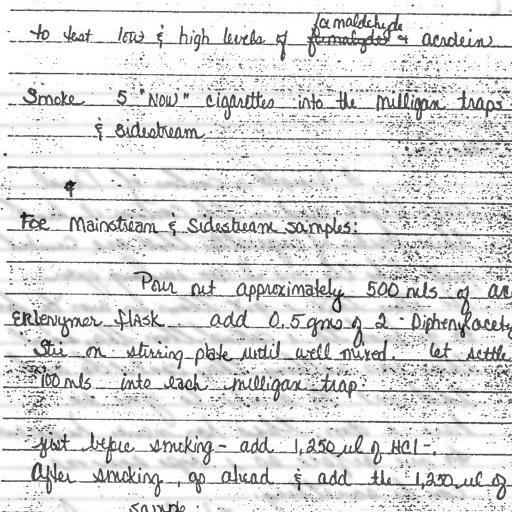 to test low & high levels of formaldehyde & acrolein
Smoke 5 "NOW" cigarettes into the milligan traps
& sidestream
&
For Mainstream & Sidestream samples:
Pour out approximately 500 mls of
Erlenymer flask add 0.5 gms of 2 Diphenylacety
Stir on stirring plate until well mixed. let settle
100 mls into each milligan trap.
Just before smoking - add 1,250 ul of HCl -.
After smoking, go ahead & add the 1,250 ul of
sample.